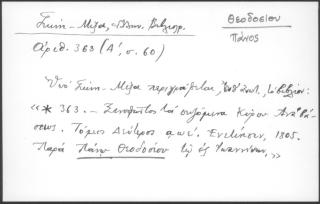 Γκίνη - Μέξα, Ελλην. Βιβλιογρ.
Θεοδοσίου
Πάνος
Αριθ. 363 (Α', σ. 60)
Υπό Γκίνη - Μέξα περιγράφεται,
το βιβλίον:
«* 363. - Ξενοφῶντος τά σωζόμενα Κύρου Ἀναβά-
σεως. Τόμος Δεύτερος αωε'. Ενετίησιν, 1805.
Παρά Πάνῳ Θεοδοσίου τῷ ἐξ Ἰωαννίνων.»